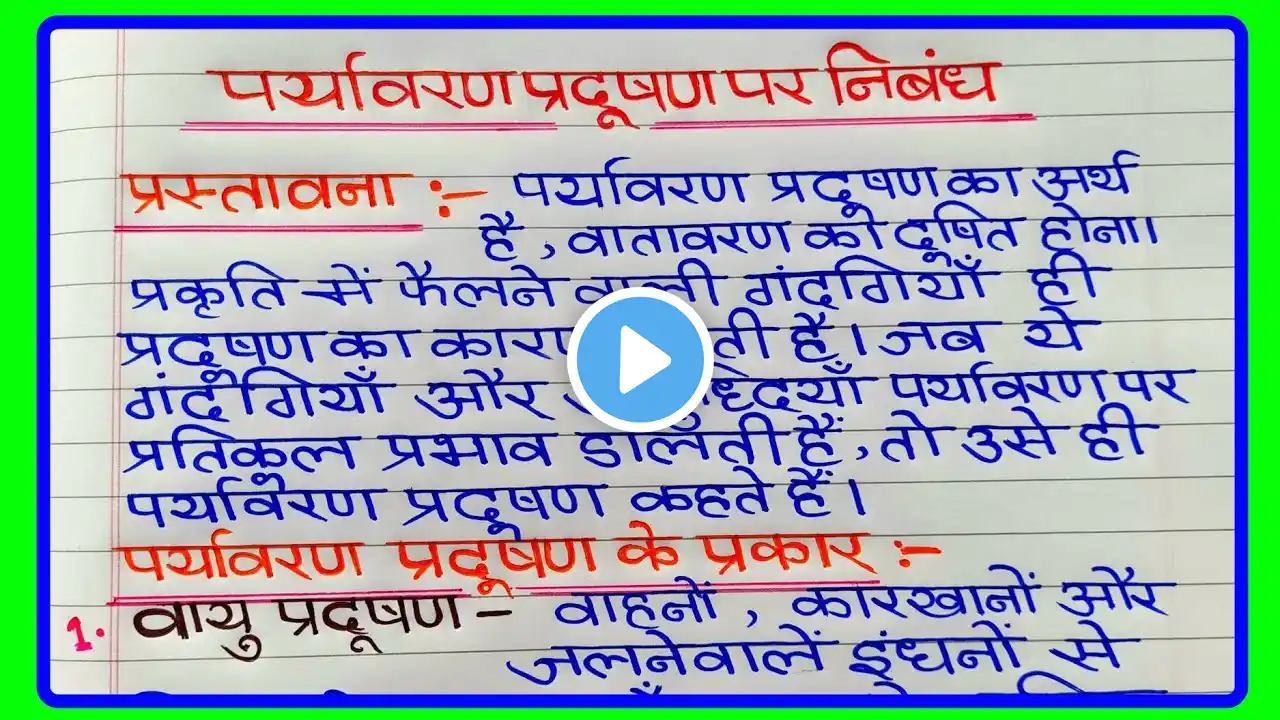 पर्यावरण प्रदूषण पर निबंध
प्रस्तावना :- पर्यावरण प्रदूषण का अर्थ
है, वातावरण को दूषित होना।
प्रकृति में फैलने वाली गंदगियाँ ही
प्रदूषण का है। जब ये
गंदगियाँ और पर्यावरण पर
प्रतिकूल प्रभाव डालती हैं, तो उसे ही
पर्यावरण प्रदूषण कहते हैं।
पर्यावरण प्रदूषण के प्रकार :-
1. वायु प्रदूषण - वाहनों, कारखानों और
जलनेवालें इंधनों से